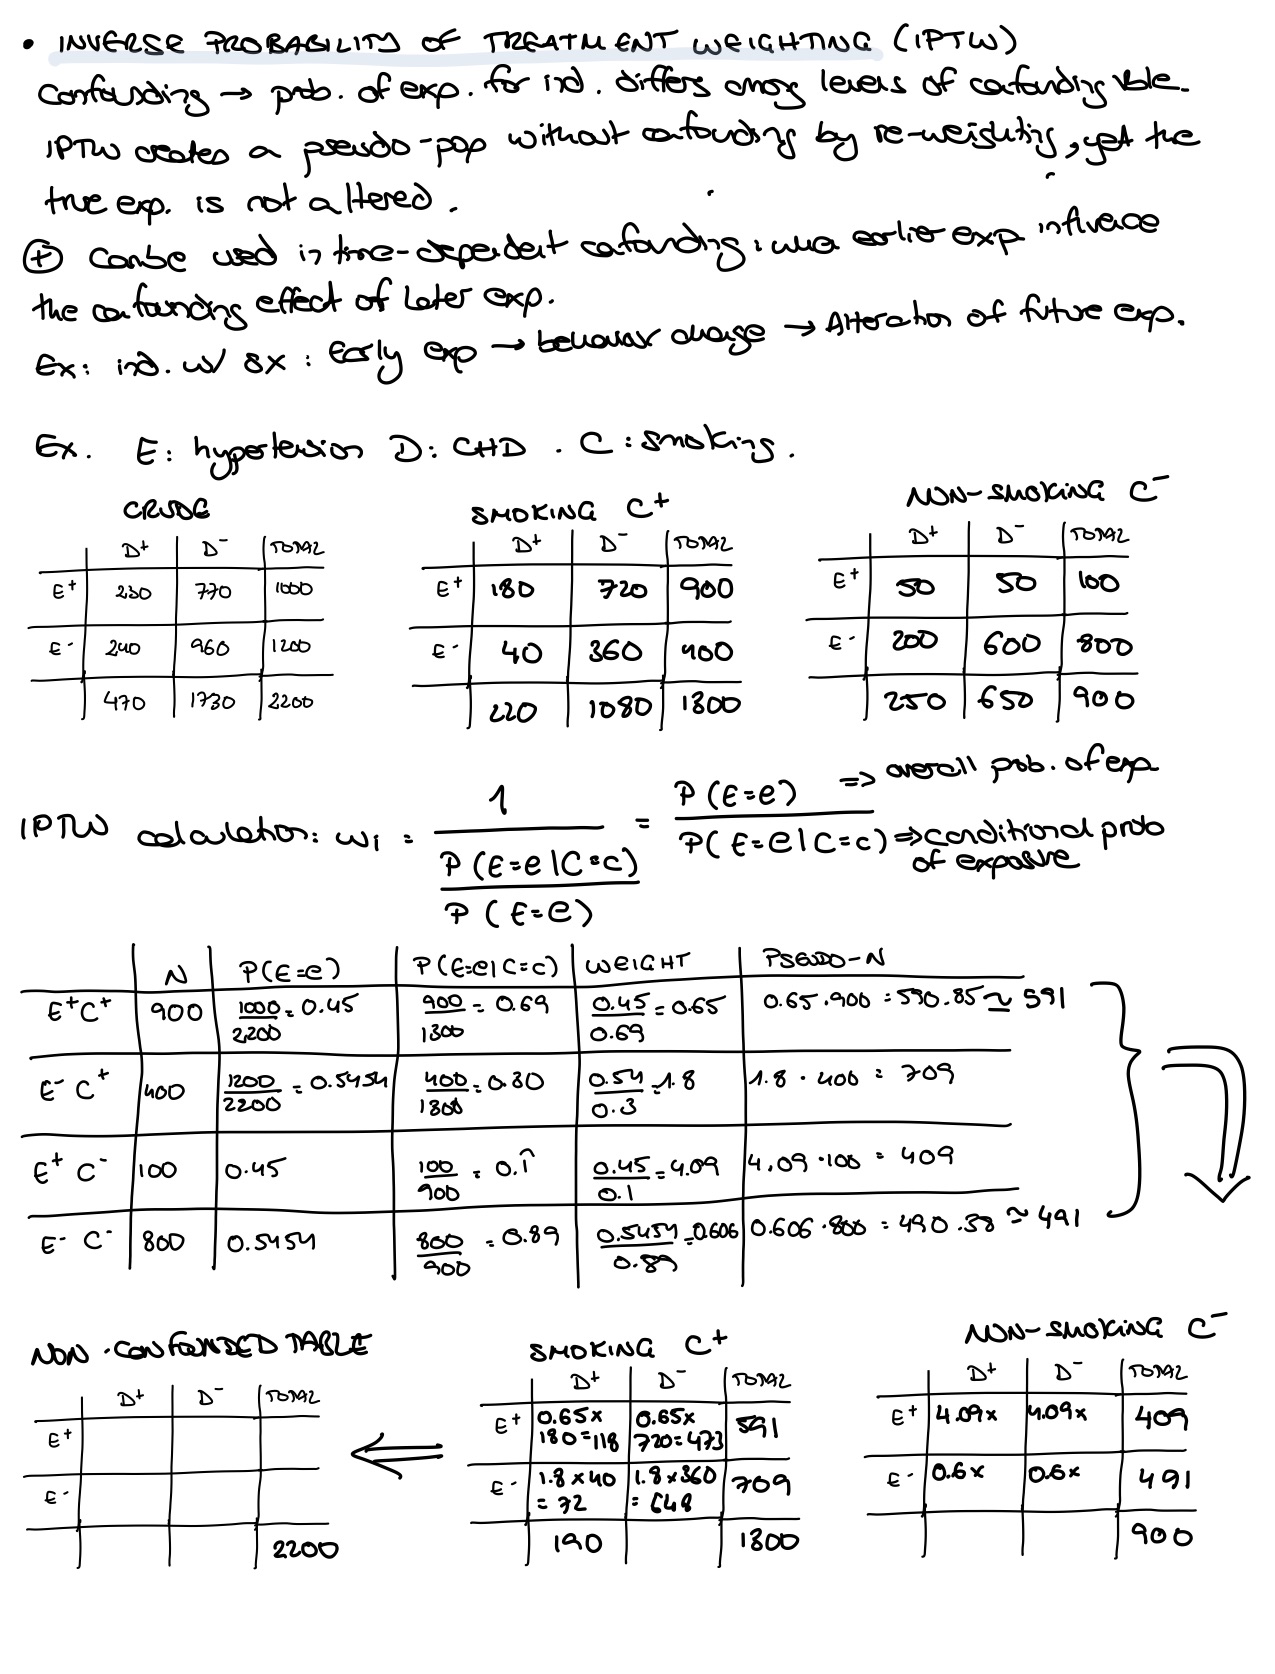 • INVERSE PROBABILITY OF TREATMENT WEIGHTING (IPTW)
Confounding → prob. of exp. for ind. differs among levels of confounding vble.
IPTW creates a pseudo-pop without confounding by re-weighting, yet the
true exp. is not altered.
⊕ Can be used in time-dependent confounding: when earlier exp influence
the confounding effect of later exp.
Ex: ind. w/ sx: Early exp → behavior change → Alteration of future exp.
Ex. E: hypertension D: CHD. C: smoking.
CRUDE
D+ D- TOTAL
E+ 230 770 1000
E- 240 960 1200
470 1730 2200
SMOKING C+
D+ D- TOTAL
E+ 180 720 900
E- 40 360 400
220 1080 1300
NON-SMOKING C-
D+ D- TOTAL
E+ 50 50 100
E- 200 600 800
250 650 900
IPTW calculation: wi = 1 / (P(E=e|C=c) / P(E=e)) = P(E=e) / P(E=e|C=c)
⇒ overall prob. of exp
⇒ conditional prob
of exposure
N P(E=e) P(E=e|C=c) WEIGHT PSEUDO-N
E+C+ 900 1000/2200 = 0.45 900/1300 = 0.69 0.45/0.69 = 0.65 0.65·900 = 590.85 ≃ 591
E- C+ 400 1200/2200 = 0.5454 400/1300 = 0.30 0.54/0.3 = 1.8 1.8·400 = 709
E+ C- 100 0.45 100/900 = 0.1̂ 0.45/0.1 = 4.09 4.09·100 = 409
E- C- 800 0.5454 800/900 = 0.89 0.5454/0.89 = 0.606 0.606·800 = 490.38 ≃ 491
NON-CONFOUNDED TABLE
D+ D- TOTAL
E+
E-
2200
SMOKING C+
D+ D- TOTAL
E+ 0.65x 0.65x 591
180=118 720=473
E- 1.8x40 1.8x360 709
= 72 = 648
190 1300
NON-SMOKING C-
D+ D- TOTAL
E+ 4.09x 4.09x 409
E- 0.6x 0.6x 491
900